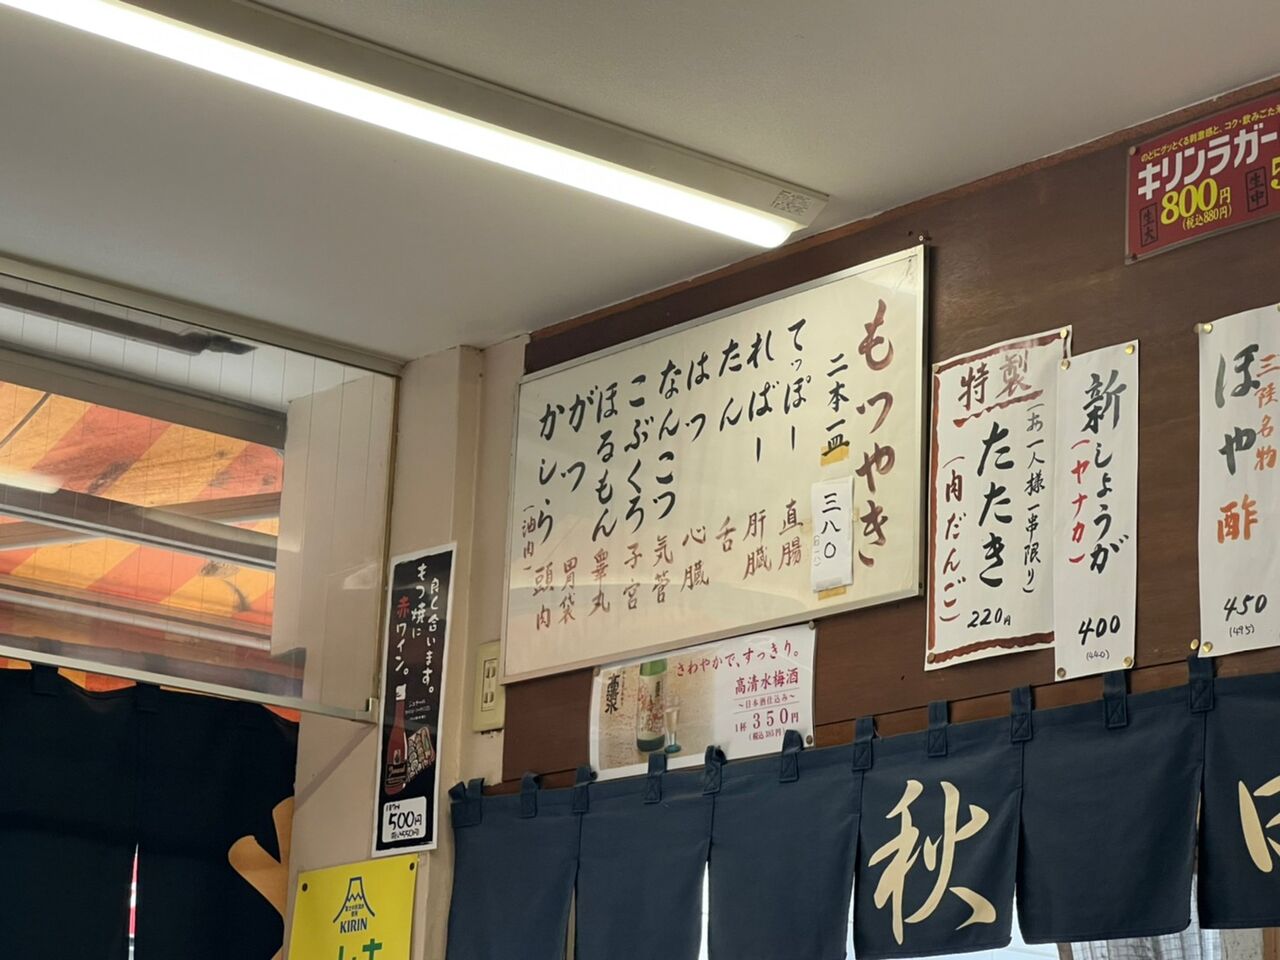 のどにグッとくる刺激感と、コク・飲みごた
キリンラガー
生大
800円
(税込880円)
生中
5
三陸名物
ほや酢
450
(495)
新しょうが
(ヤナカ)
400
(440)
特製
(お一人様一串限り)
たたき
(肉だんご)
220円
もつやき
二本一皿
三八〇
てっぽー 直腸
ればー 肝臓
たん 舌
はつ 心臓
なんこつ 気管
こぶくろ 子宮
ほるもん 睾丸
がつ 胃袋
かしら 頭肉
(油肉)
さわやかで、すっきり。
高清水梅酒
～日本酒仕込み～
1杯 350円
(税込385円)
良く合います。
もつ焼に
赤ワイン。
500円
KIRIN
秋